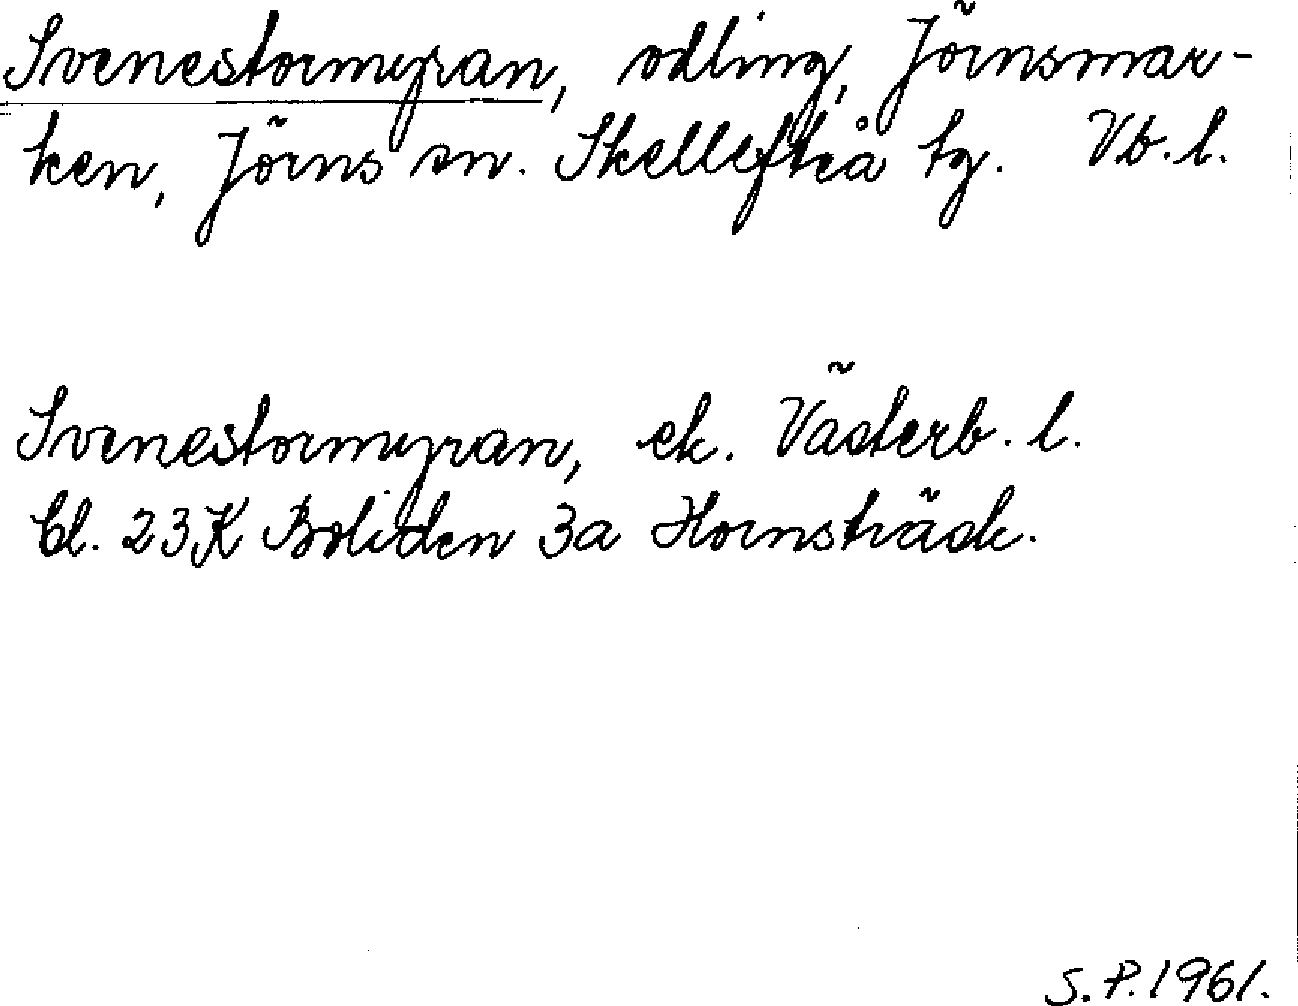 Svenestormyran, odling, Jörnsmar-
ken, Jörns sn. Skellefteå tg. Vb. l.
Svenestormyran, ek. Västerb. l.
bl. 23K Boliden 3a Hornsträsk.
S.P. 1961.